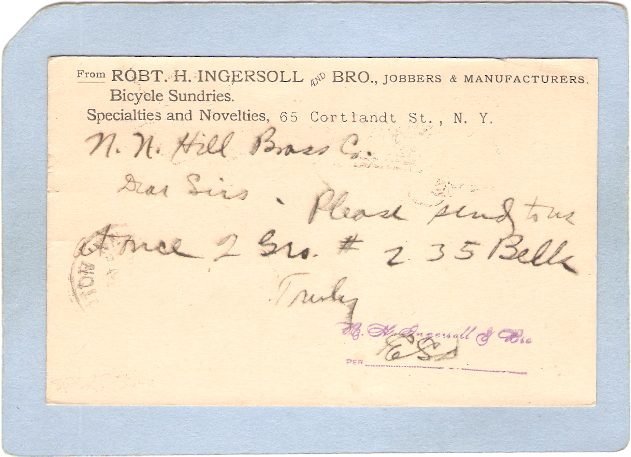 From ROBT. H. INGERSOLL AND BRO., JOBBERS & MANUFACTURERS.
Bicycle Sundries.
Specialties and Novelties, 65 Cortlandt St., N. Y.
N. N. Hill Brass Co.
Dear Sirs. Please send to us
at once 2 Gro. # 235 Bells
Truly
R. H. Ingersoll & Bro
PER